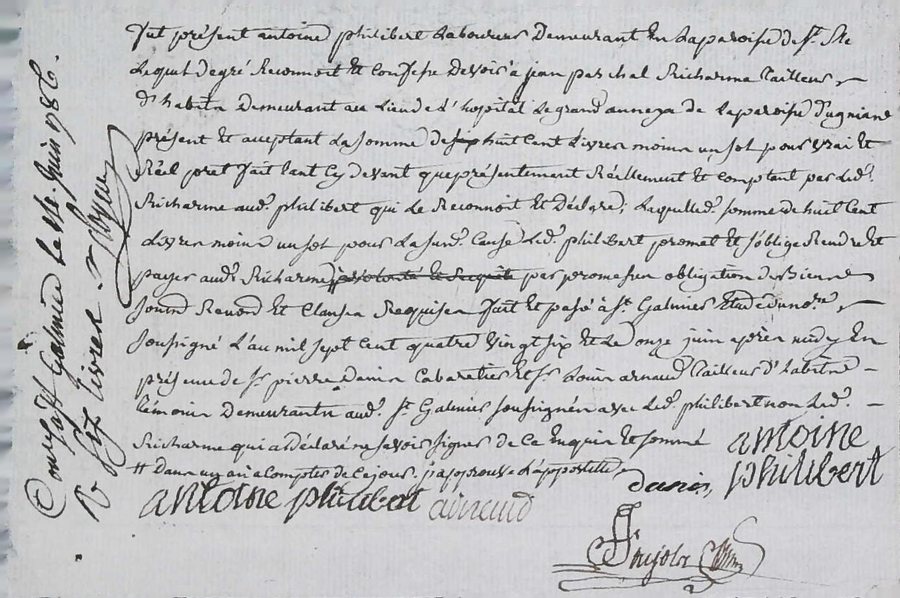 fut présent antoine philibert laboureur Demeurant En la paroisse de St.
Lequel de gré Reconnoit Et Confesse Devoir a jean paschal Richarme Tailleur
D'habits Demeurant au Lieu de L'hopital Le grand annexe de la paroisse D'
présent Et acceptant La somme de huit Cent Livres moins un sol pour vrai Et
Réel pret fait tant Cy devant que présentement Réellement Et Comptant par Led.
Richarme aud. philibert qui Le Reconnoit Et Déclare; Laquelle. somme de huit Cent
Livres moins un sol pour La susd. Cause Led. philibert promet Et s'oblige Rendre Et
payer aud. Richarme a volonté Et Requete par promesses obligation de Biens
soumd. Renond. Et Clauses Requises fait Et passé a St. Galmier Etude du nore.
soussigné L'an mil sept Cent quatre vingt six Et Le onze juin après midy En
présence de Sr. pierre Danis Cabaretier Et Sr. Louis arnaud Tailleur D'habits
témoins Demeurants aud. St. Galmier soussignés avec Led. philibert non Led.
Richarme qui a Déclaré ne savoir signer de Ce Enquis Et sommé
# Dans un an a Compter de Ce jour. j'approuve L'appostille
antoine
philibert
danis
antoine philibert arnaud
Conlé à St Galmier Le juin 1786.
R. six Livres